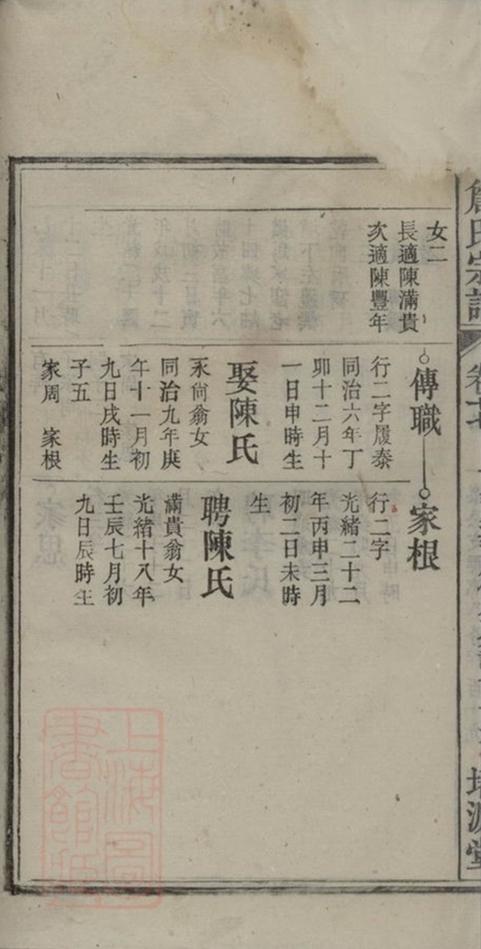 氏宗譜
卷十
女二
長適陳滿貴
次適陳豐年
傳職
行二字履泰
同治六年丁
卯十二月十
一日申時生
娶陳氏
永尙翁女
同治九年庚
午十一月初
九日戌時生
子五
家周 家根
家根
行二字
光緒二十二
年丙申三月
初二日未時
生
聘陳氏
滿貴翁女
光緒十八年
壬辰七月初
九日辰時生
上海圖
書館藏